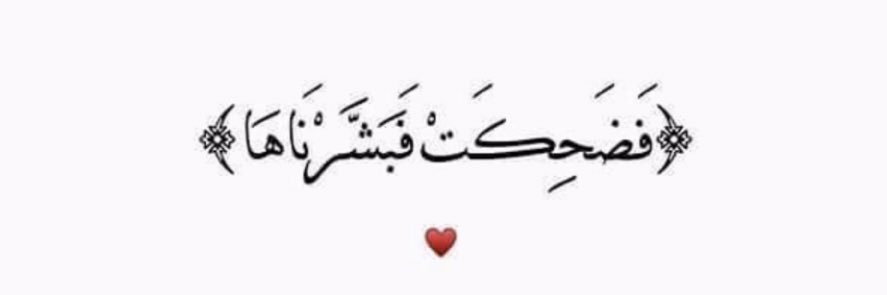 ﴿فَضَحِكَتْ فَبَشَّرْنَاهَا﴾